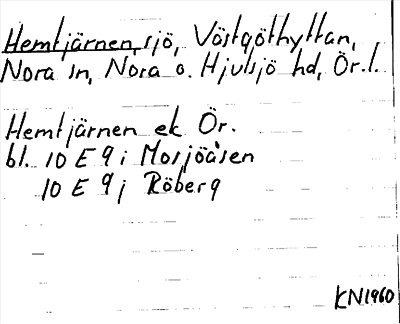 Hemtjärnen, sjö, Västgöthyttan,
Nora sn, Nora o. Hjulsjö hd, Ör.l.
Hemtjärnen ek Ör.
bl. 10 E 9 i Mosjöåsen
10 E 9 j Röberg
KN1960